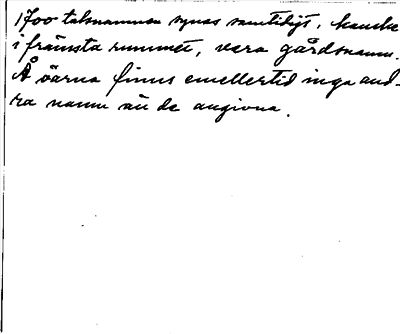 1700 talsnamnen synas samtidigt, kanske
i främsta rummet, vara gårdsnamn.
Å öarna finns emellertid inga and-
ra namn än de angivna.